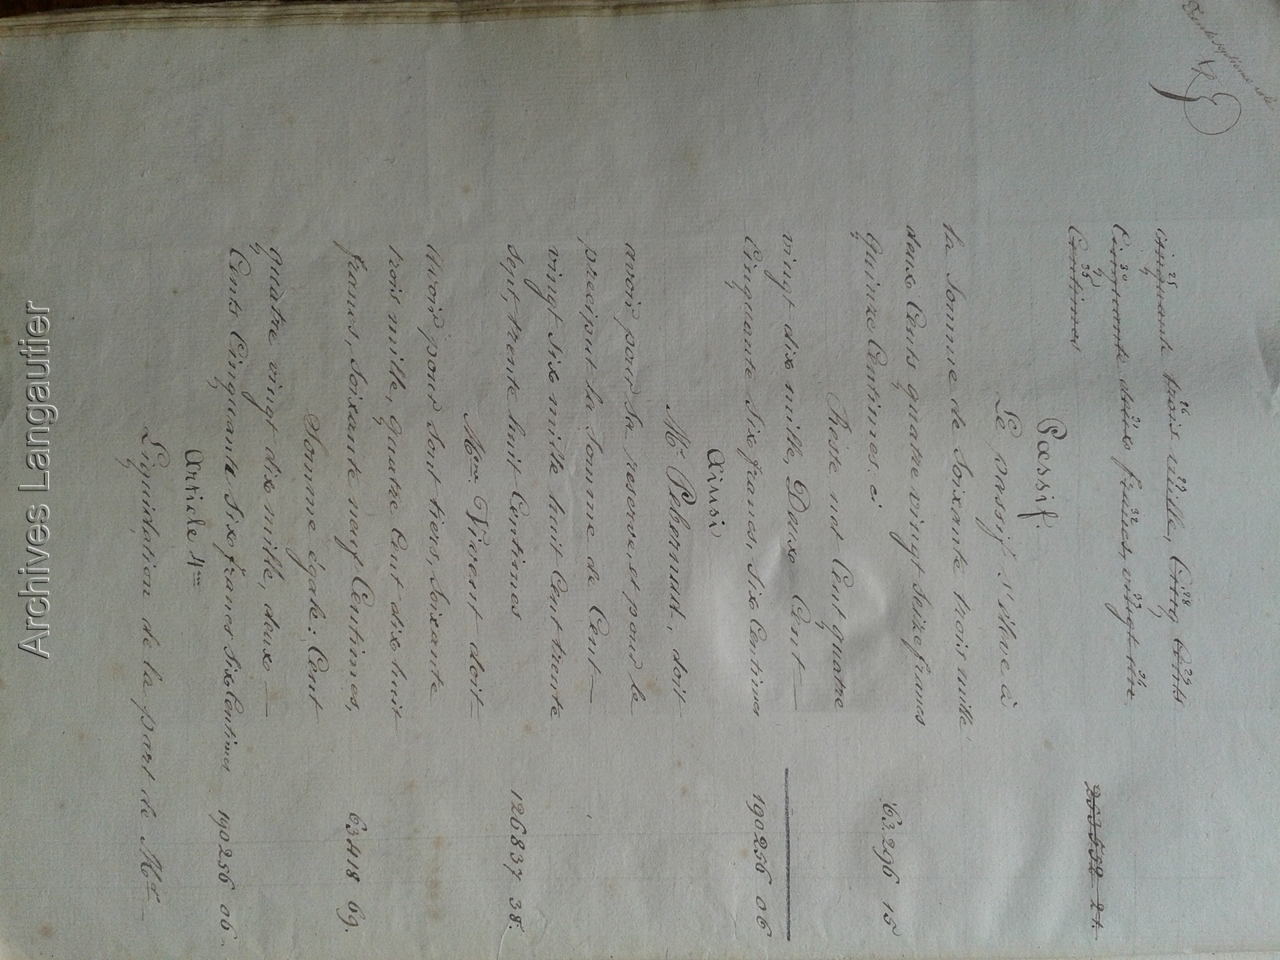 cinquante trois mille, Cinq Cents
Cinquante deux francs, vingt une
Centimes 253552 21.
Passif
Le passif s'élève à
la Somme de Soixante trois mille
deux Cents quatre vingt Seize francs
quinze Centimes, ci 63.296 15
Reste net Cent quatre
vingt dix mille, Deux Cent
Cinquante Six francs, Six Centimes 190256 06
Aissi
Mr Pehernad, doit
avoir pour sa reserve et pour le
preciput la Somme de Cent
vingt Six mille huit Cent trente
sept, trente huit Centimes 126837 38.
Mme Vivent doit
avoir pour Sont tiers, Soixante
trois mille, quatre Cent dix huit
francs, Soixante neuf Centimes, 63418 69.
Somme égale: Cent
quatre vingt dix mille, deux
Cents Cinquante Six francs Six Centimes 190256 06.
Article 4me
Liquidation de la part de Md
Archives Langautier